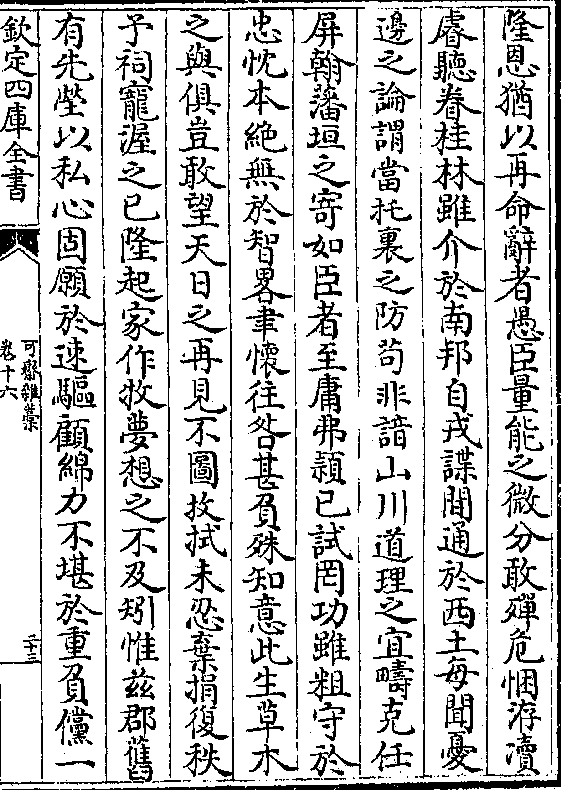 隆恩猶以再命辭者愚臣量能之微分敢殫危悃洊瀆
睿聽眷桂林雖介於南邦自戎諜間通於西土每聞憂
邊之論謂當托裏之防苟非諳山川道理之宜疇克任
屏翰藩垣之寄如臣者至庸弗頴已試罔功雖粗守於
忠忱本絶無於智畧聿懷往咎甚負殊知意此生草木
之與俱豈敢望天日之再見不圖抆拭未忍棄捐復秩
予祠寵渥之已隆起家作牧夢想之不及矧惟兹郡舊
有先壂以私心固願於速驅顧綿力不堪於重負儻一
欽定四庫全書
可齋雜藁
卷十六
二十三